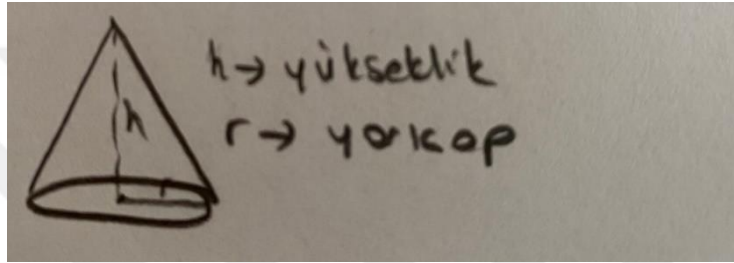 h→ yükseklik
r→ yarıcap
h
r